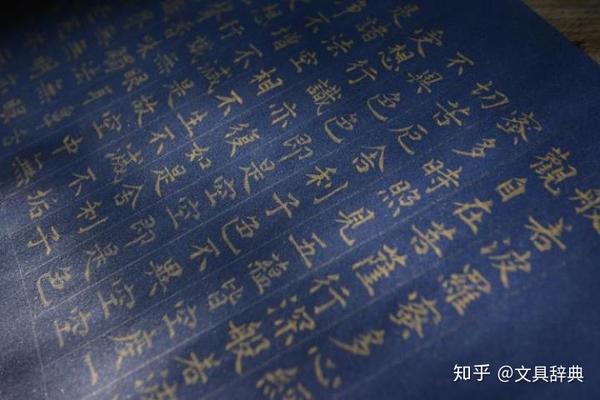 般若波羅蜜多心經
觀自在菩薩行深般若波
蜜多時照見五蘊皆空度一
切苦厄舍利子色不異空空
不異色色即是空空即是色
受想行識亦復如是舍利子
是諸法空相不生不滅不垢
淨不增不減是故空中無
想行識無眼耳鼻舌
知乎 @文具辞典